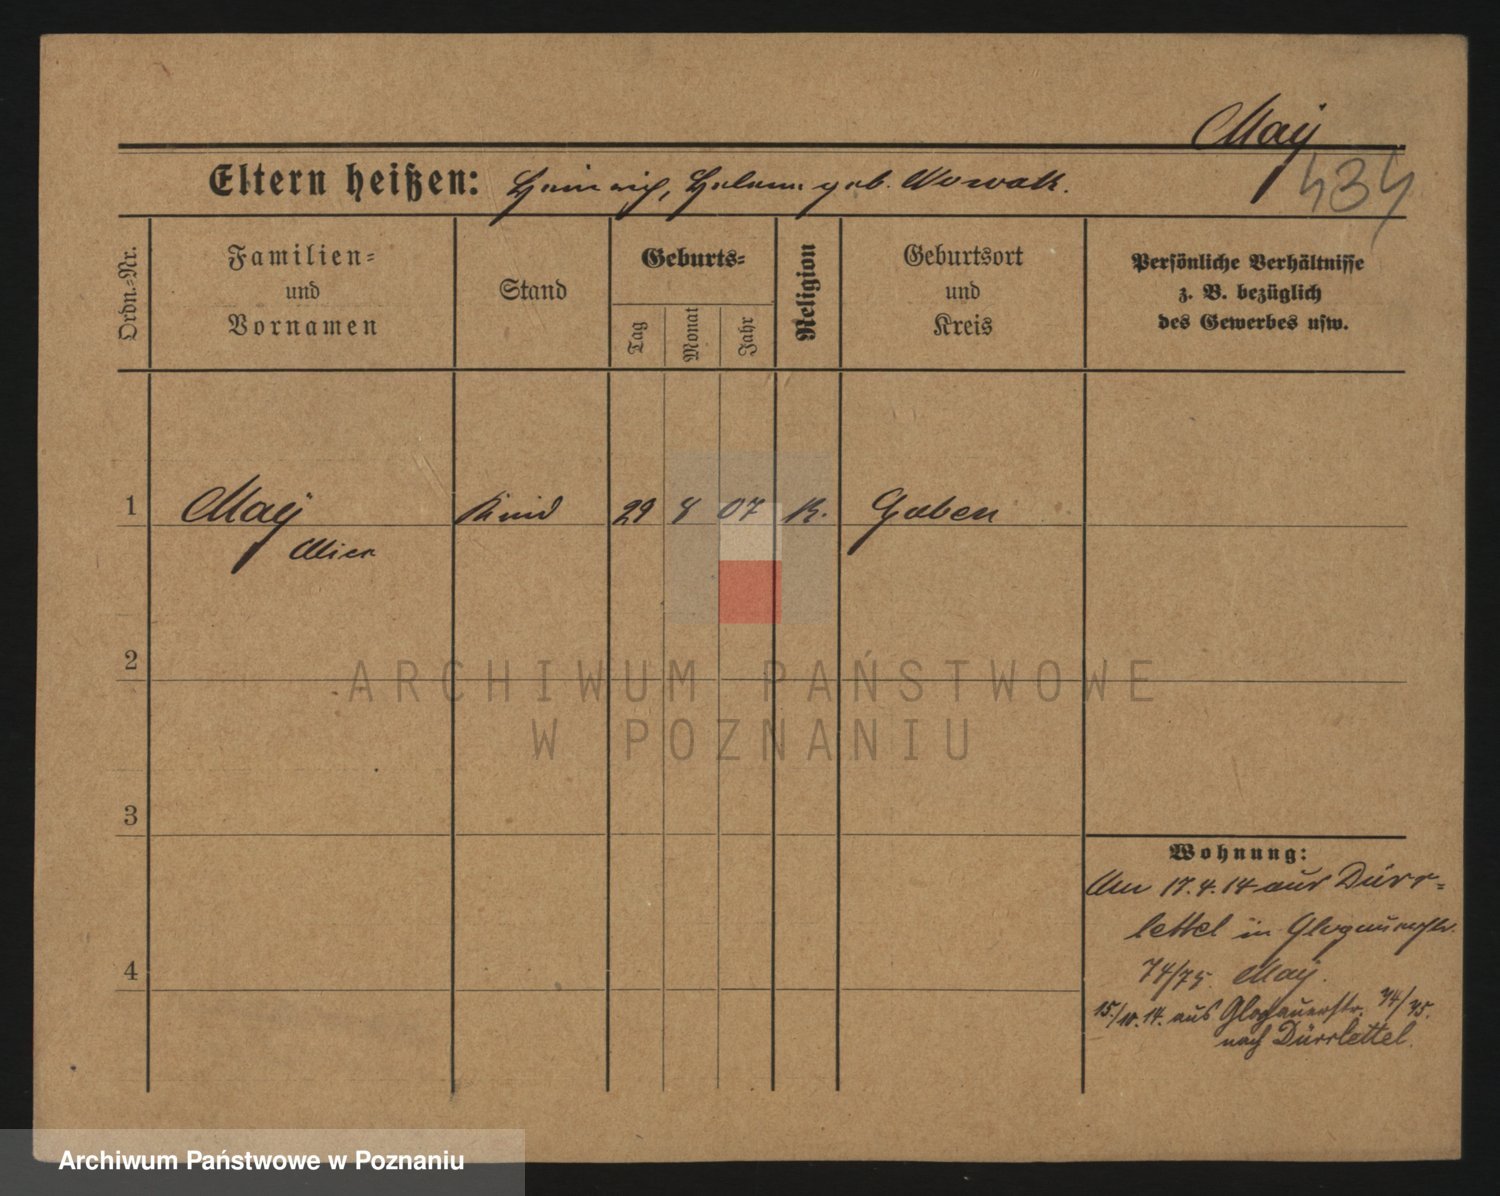 Maÿ
434
Eltern heißen: Heinrich, Helene geb. Nowak.
Ordn.-Nr.
Familien- und Vornamen
Stand
Geburts-
Tag
Monat
Jahr
Religion
Geburtsort und Kreis
Persönliche Verhältnisse
z. B. bezüglich
des Gewerbes usw.
1 Maÿ Kind 29 8 07 K. Guben
2
3
4
ARCHIWUM PAŃSTWOWE
W POZNANIU
Wohnung:
17.4.14 aus Dürr-
lettel in Glogauerstr.
74/75. Maÿ.
15./10.14. aus Glogauerstr. 74/75.
nach Dürrlettel.
Archiwum Państwowe w Poznaniu